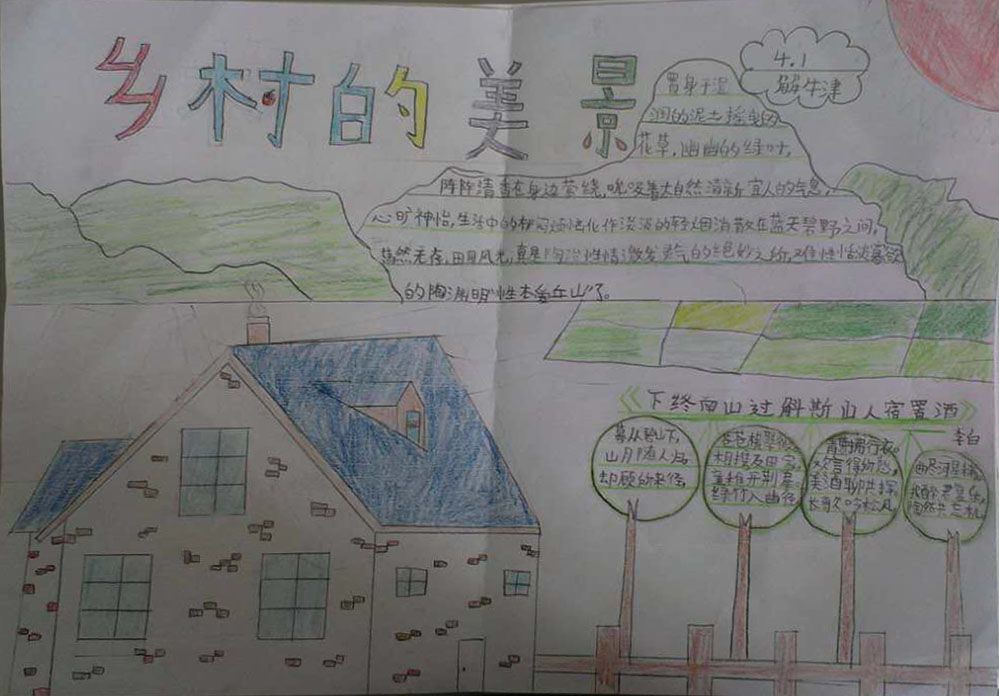 乡村的美景
4.1
解牛津
置身于湿
润的泥土
花草,幽幽的绿叶,
阵阵清香在身边萦绕,呼吸着大自然清新宜人的气息,
心旷神怡,生活中的 化作淡淡的轻烟消散在蓝天碧野之间,
荡然无存,田园风光,真是陶冶性情激发灵气的绝妙之所,难怪恬淡寡欲
的陶渊明"性本爱丘山"了。
《下终南山过斛斯山人宿置酒》
李白
暮从碧山下,
山月随人归。
却顾所来径,
苍苍横翠微。
相携及田家,
童稚开荆扉。
绿竹入幽径,
青萝拂行衣。
欢言得所憩,
美酒聊共挥。
长歌吟松风,
曲尽河星稀。
我醉君复乐,
陶然共忘机。